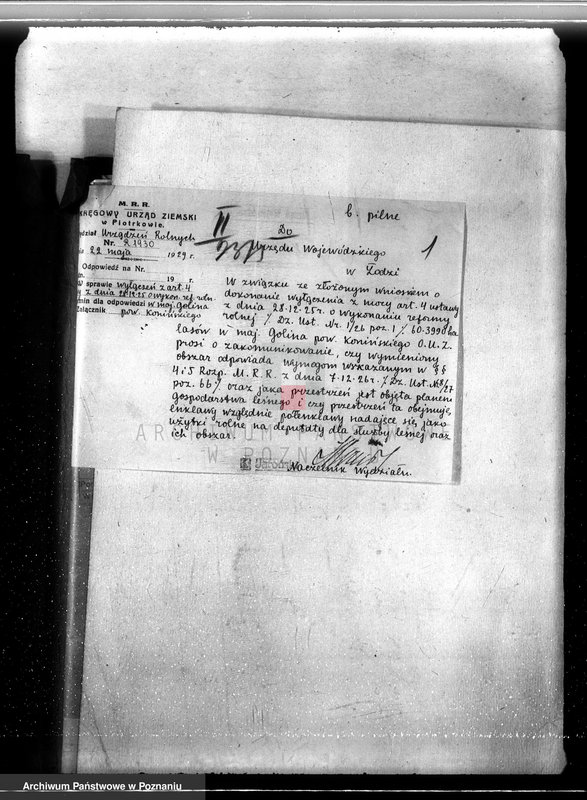 M. R. R.
KRĘGOWY URZĄD ZIEMSKI
w Piotrkowie.
dział Urządzeń Rolnych
Nr. R 1930
22 maja 1929 r.
Odpowiedź na Nr.
19 r.
W sprawie wyłączeń z art. 4
z dnia 28.12.25 o wykon. ref. roln.
min dla odpowiedzi w maj. Golina
Załącznik pow. Konińskiego
b. pilne
II
1
Do
Urzędu Wojewódzkiego
w Łodzi
W związku ze złożonym wnioskiem o
dokonanie wyłączenia z mocy art. 4 ustawy
z dnia 28.12.25r. o wykonaniu reformy
rolnej /Dz. Ust. Nr. 1/26 poz. 1/ 60.3990 ha
lasów w maj. Golina pow. Konińskiego O.U.Z.
prosi o zakomunikowanie, czy wymieniony
obszar odpowiada wymogom wskazanym w §§
4 i 5 Rozp. M. R. R. z dnia 7.12.26r. /Dz. Ust. N8/27
poz. 66/ oraz jaka przestrzeń jest objęta planem
gospodarstwa leśnego i czy przestrzeń ta obejmuje
enklawy względnie półenklawy nadające się jako
użytki rolne na deputaty dla służby leśnej oraz
ich obszar.
ARCHIWUM
W POZN
Naczelnik Wydziału.
Archiwum Państwowe w Poznaniu